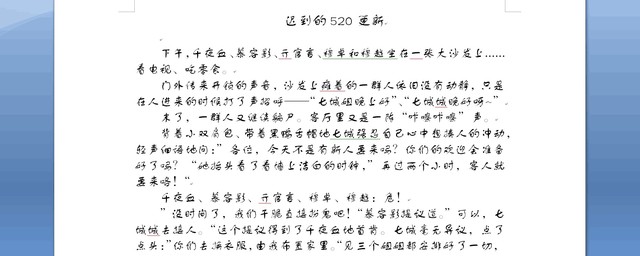 迟到的520 更新
下午,千夜血、慕容影、亓官宵、穆卓和穆越坐在一张大沙发上……
看电视、吃零食。
门外传来开锁的声音,沙发上瘫着的一群人依旧没有动静,只是
在人进来的时候打了声招呼——“七城姐晚上好”、“七城城晚好呀~”
末了,一群人又继续躺尸。客厅里又是一阵“咔嚓咔嚓”声。
背着小双肩包、带着黑鸭舌帽地七城强忍自己心中想揍人的冲动,
轻声细语地问:”各位,今天不是有新人要来吗?你们的欢迎会准备
好了吗?“她抬头看了看墙上洁白的时钟,”再过两个小时,客人就
要来咯!“。
千夜血、慕容影、亓官宵、穆卓、穆越:危!
”没时间了,我们干脆直接扮鬼吧!“慕容影提议道。”可以,七
城城去接人。“这个提议得到了千夜血地首肯。七城毫无异议,点了
点头:”你们去换衣服,由我布置家里。“见三个姐姐都安排好了一切,